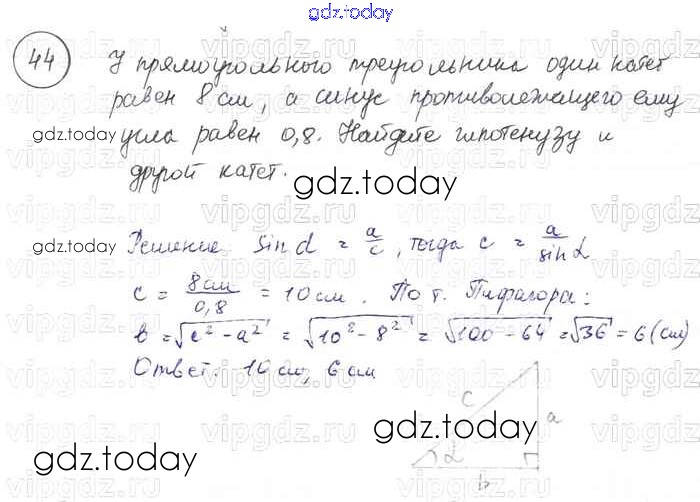 gdz.today
44 У прямоугольного треугольника один катет
равен 8 см, а синус противолежащего ему
gdz.today угла равен 0,8. Найдите гипотенузу и
другой катет.
gdz.today
gdz.today Решение. sin α = a/c, тогда c = a/sin α
c = 8 см/0,8 = 10 см. По т. Пифагора:
b = √c² - a² = √10² - 8² = √100 - 64 = √36 = 6 (см)
Ответ: 10 см, 6 см
c a
gdz.today
α
gdz.today
b